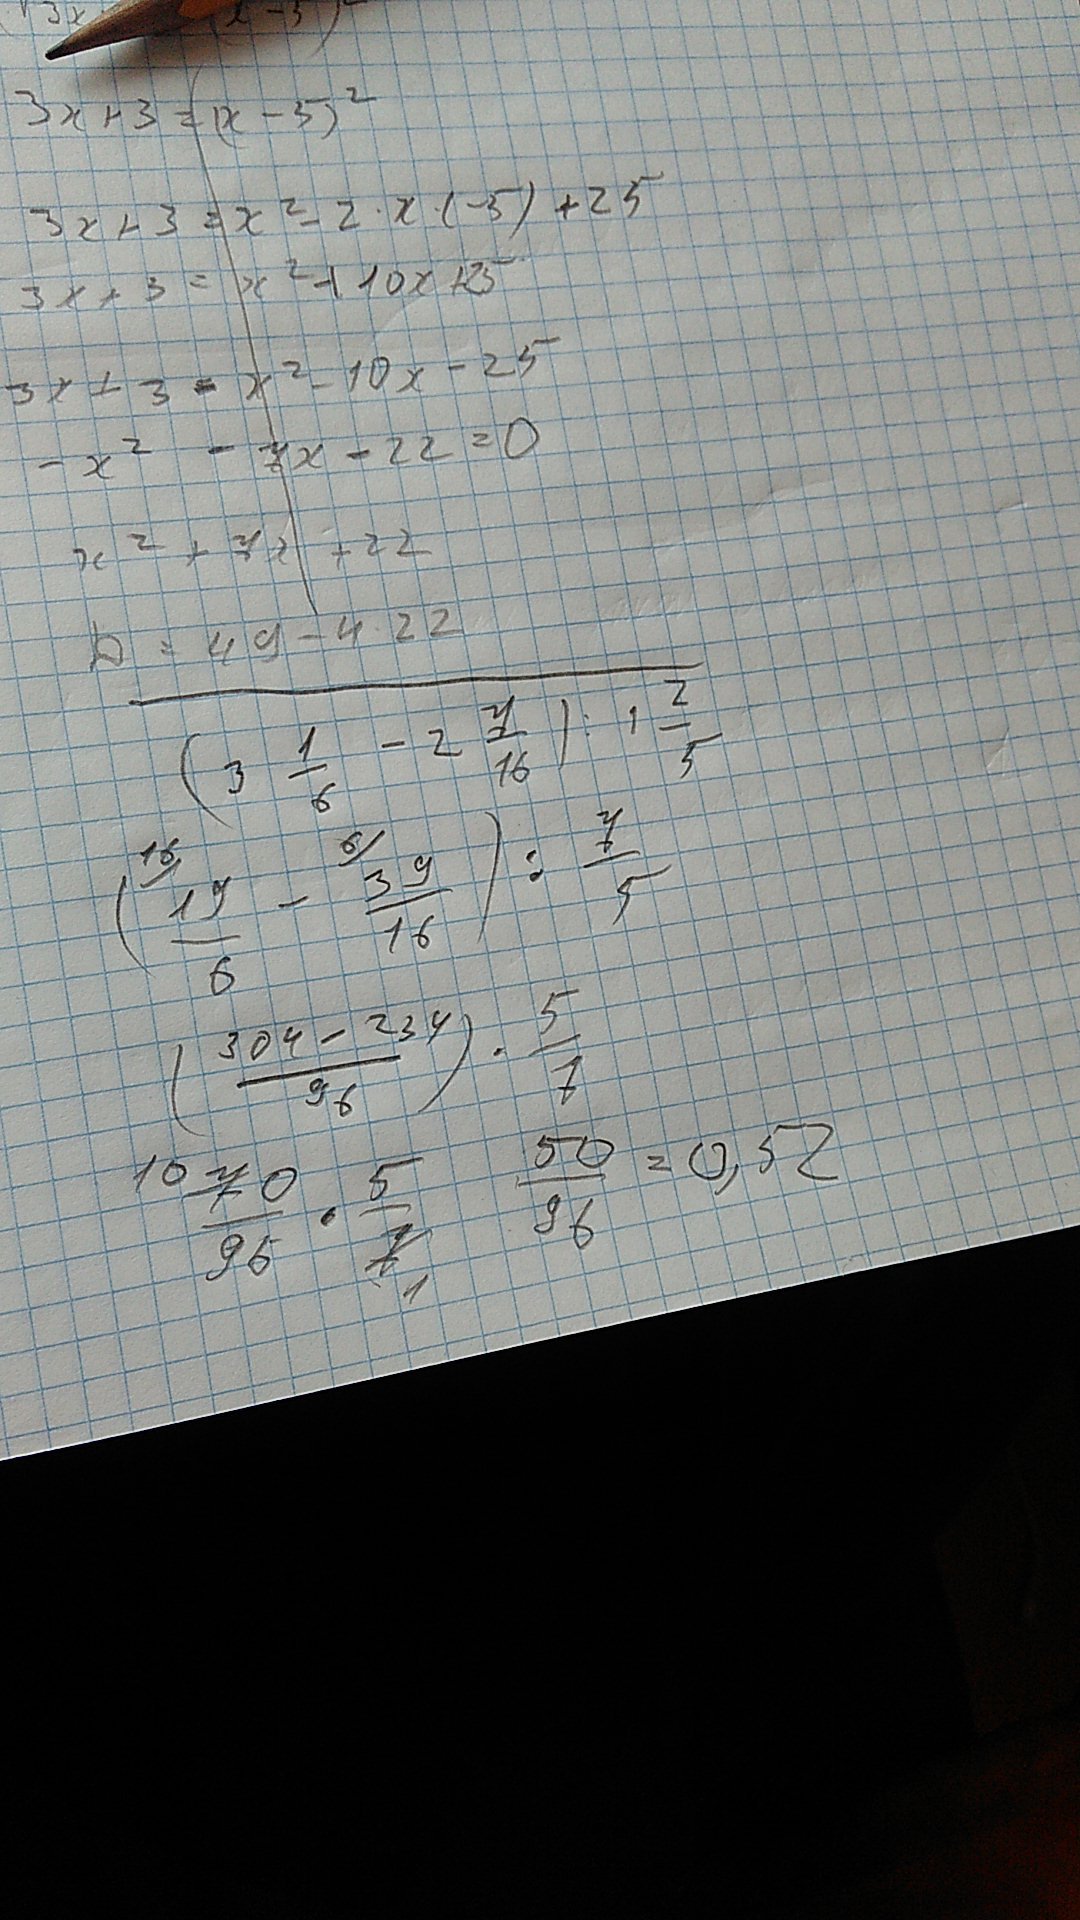 3x (x-5)²
3x+3=(x-5)²
3x+3=x²-2·x·(-5)+25
3x+3=x²+10x+25
3x+3-x²-10x-25
-x²-7x-22=0
x²+7x+22
D=49-4·22
(3 1/6 - 2 7/16) : 1 2/5
(16/ 19/6 - 6/ 39/16) : 7/5
((304-234)/96) · 5/7
10 70/96 · 5/7 1 50/96 = 0,52